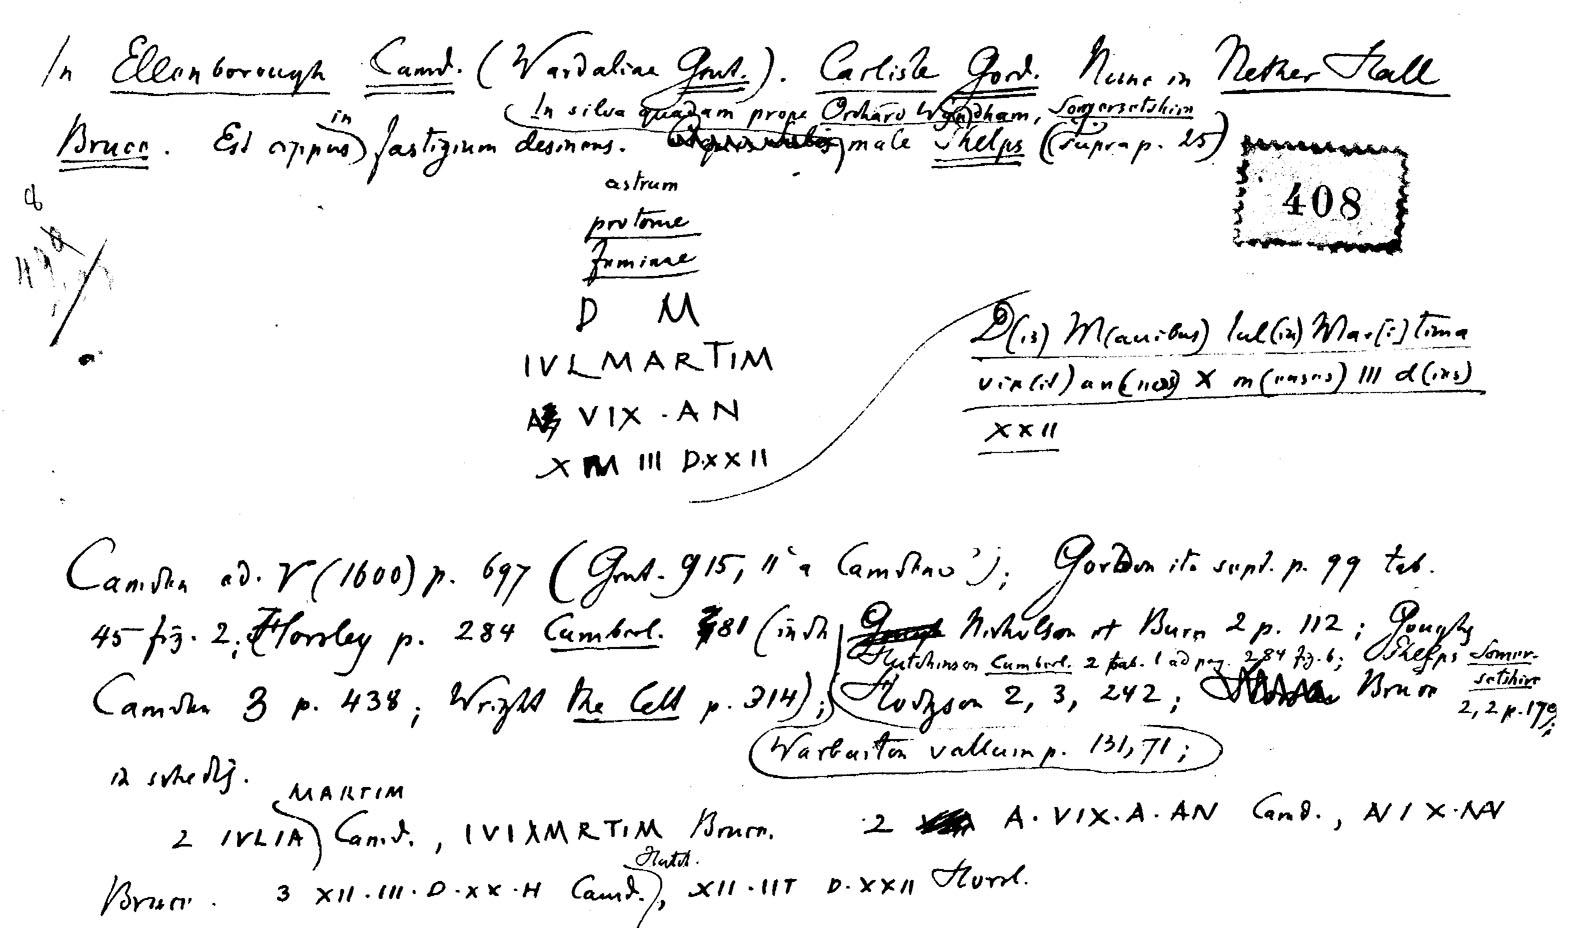 In Ellenborough Camd. (Vardaliae Grut.). Carlisle Gord. Nunc in Nether Hall
In silva quadam prope Orchard Wyndham, Somersetshire
Bruce. Est cippus in fastigium desinens. male Phelps (supra p. 25)
408
8
astrum
protome
feminae
D M
IVL MARTIM
A VIX . AN
X M III D.XXII
D(is) M(anibus) Iul(ia) Mar[i]tima
vix(it) an(nos) X m(enses) III d(ies)
XXII
Camden ed. V (1600) p. 697 (Grut. 915, 11 'a Camdeno'); Gordon itin. sept. p. 99 tab.
45 fig. 2; Horsley p. 284 Cumberl. 81 (inde Nicholson et Burn 2 p. 112; Goughs
Hutchinson Cumberl. 2 tab. 1 ad pag. 284 fig. 6; Phelps Somersetshire 2, 2 p. 179;
Camden 3 p. 438; Wright the Celt p. 314); Hodgson 2, 3, 242; Bruce
Warburton vallum p. 131, 71;
in schedis.
MARTIM
2 IVLIA Camd., IVIXMRTIM Bruce. 2 A. VIX. A. AN Camd., NIX.AN
Bruce. 3 XII.III.D.XX.H Camd. Hutch., XII.IIT D.XXII Horsl.